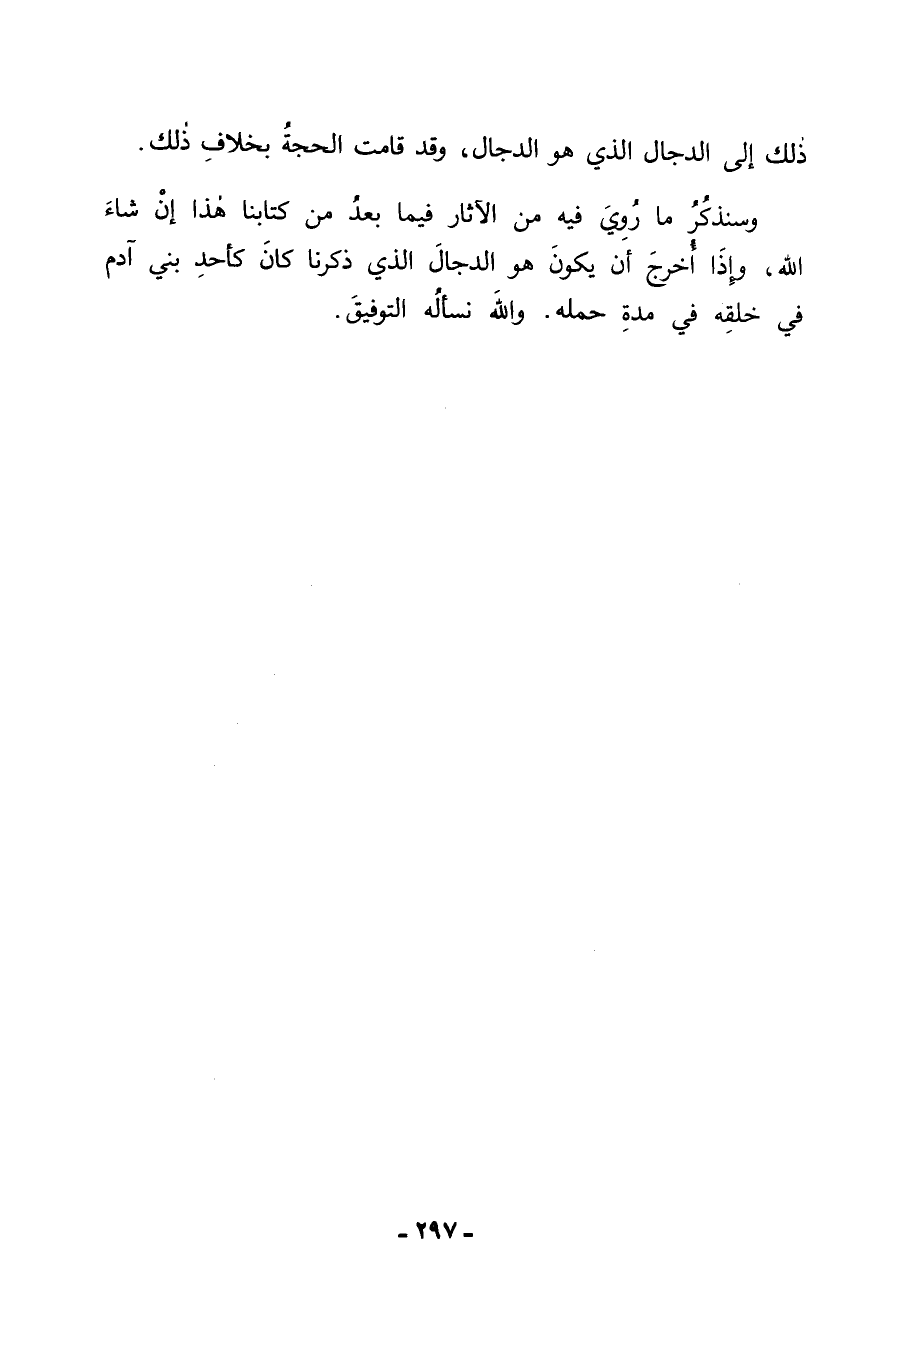 ذٰلك إلى الدجال الذي هو الدجال، وقد قامت الحجةُ بخلافِ ذٰلك.
وسنذكُرُ ما رُوِيَ فيه من الآثار فيما بعدُ من كتابنا هٰذا إنْ شاءَ
الله، وإِذَا أُخرجَ أن يكونَ هو الدجالَ الذي ذكرنا كانَ كأحدِ بني آدم
في خلقِه في مدةِ حمله. واللهَ نسألُه التوفيقَ.
- ٢٩٧ -